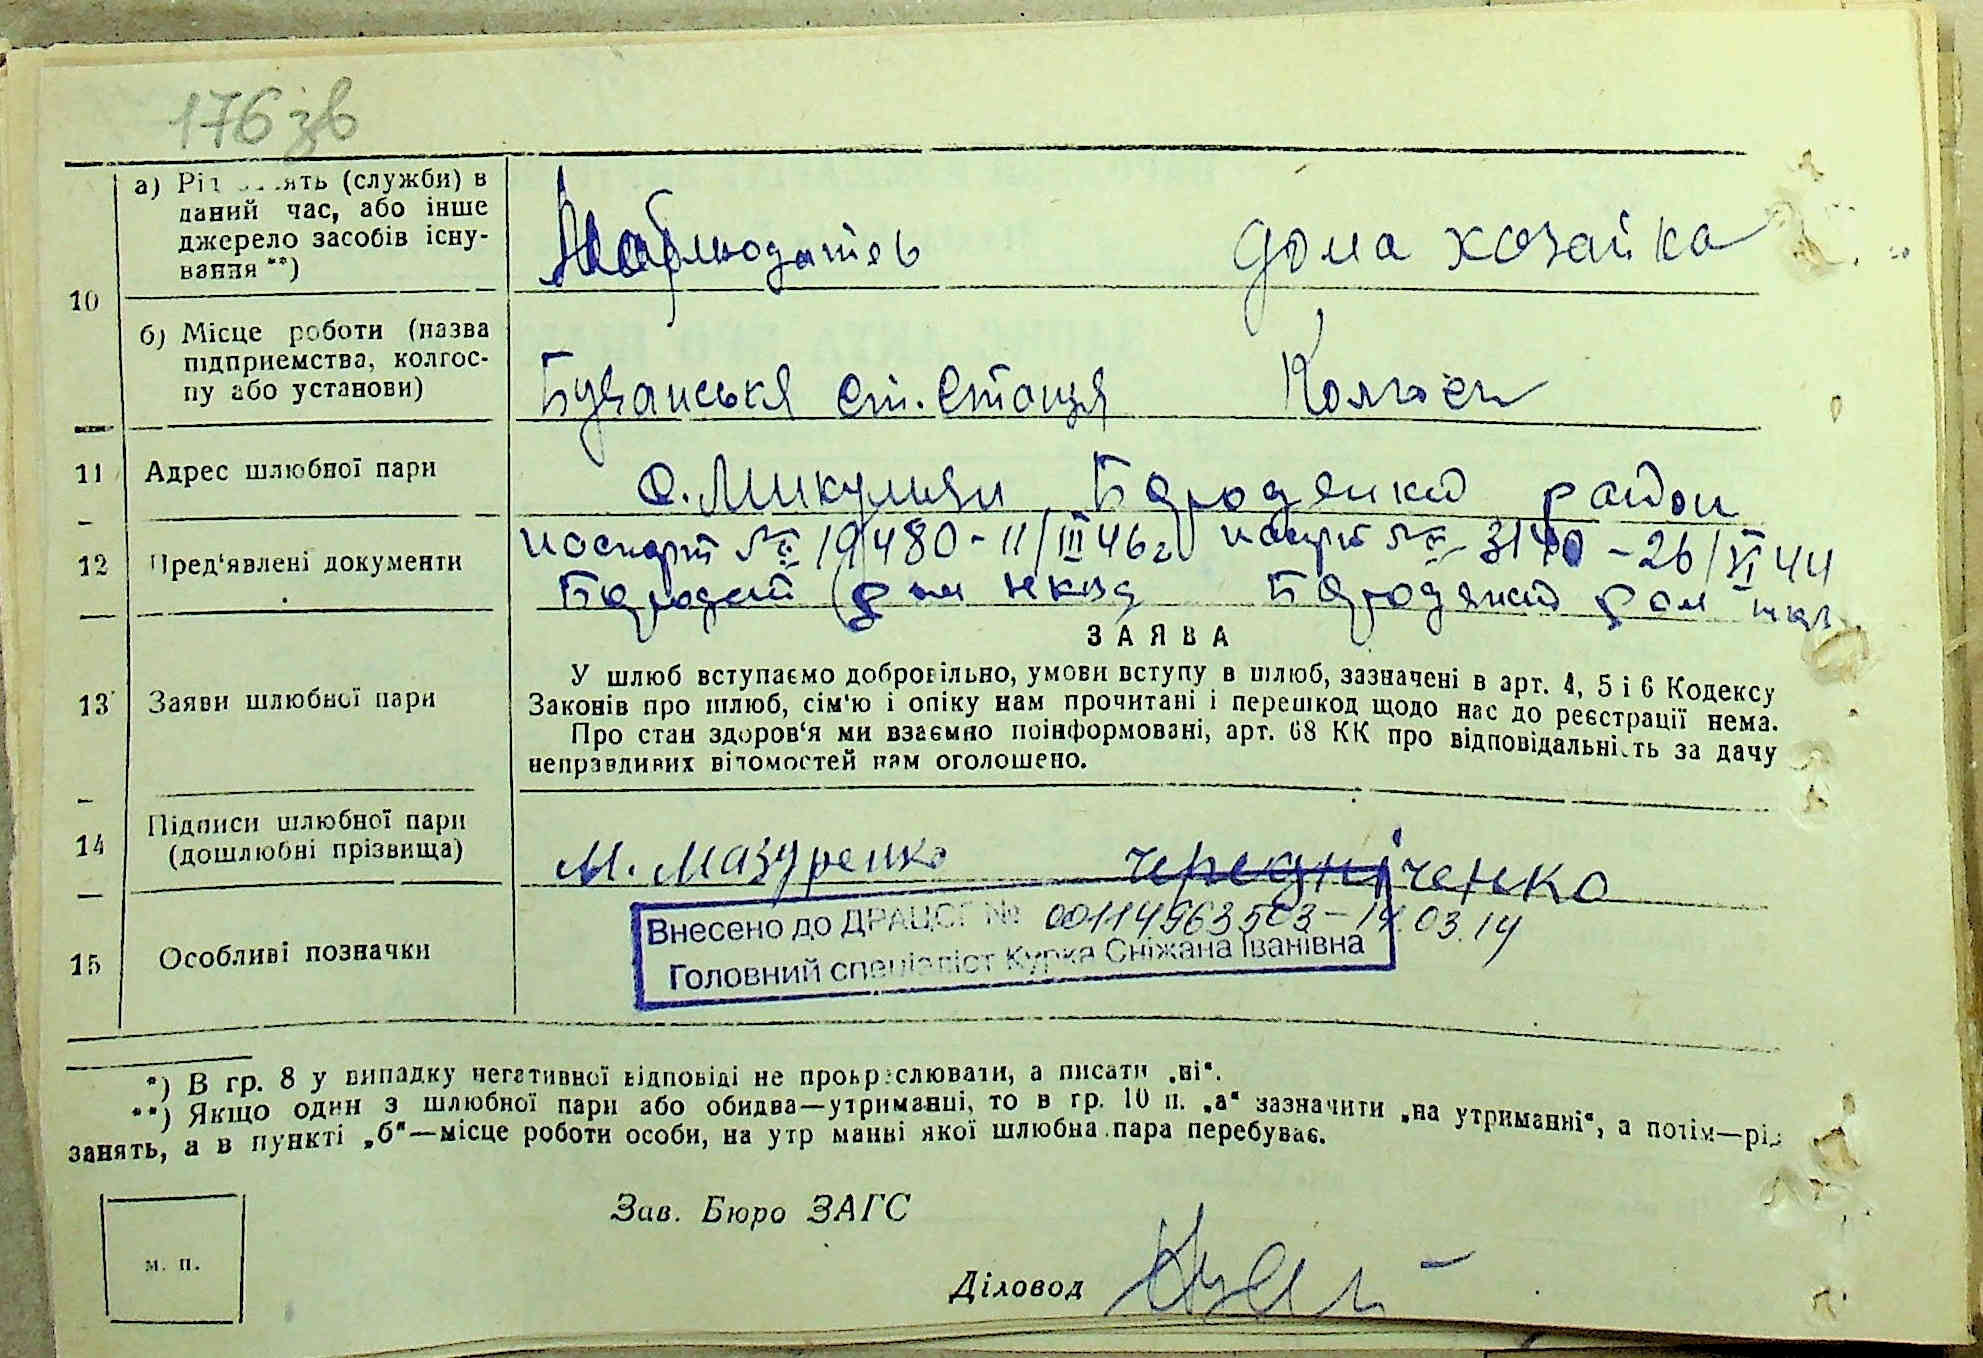 176 зв
а) Рід занять (служби) в
даний час, або інше
джерело засобів існу-
вання **)
Наблюдатель дома хозайка
10
б) Місце роботи (назва
підприемства, колгос-
пу або установи)
Бузанська ст. Колгосп
11 Адрес шлюбної пари
с. Микуличи Бородянкий район
12 Пред'явлені документи
паспорт № 19480 - 11/III 46 г паспрт № 3140 - 26/VI 44
НКВД
ЗАЯВА
13 Заяви шлюбної пари
У шлюб вступаємо добровільно, умови вступу в шлюб, зазначені в арт. 4, 5 і 6 Кодексу
Законів про шлюб, сім'ю і опіку нам прочитані і перешкод щодо нас до реєстрації нема.
Про стан здоров'я ми взаємно поінформовані, арт. 68 КК про відповідальність за дачу
неправдивих відомостей нам оголошено.
14 Підписи шлюбної пари
(дошлюбні прізвища)
М. Мазуренко Чередніченко
15 Особливі позначки
Внесено до ДРАЦСГ № 00114963503 - 14.03.14
Головний спеціаліст Курка Сніжана Іванівна
*) В гр. 8 у випадку негативної відповіді не прокреслювати, а писати „ні“.
**) Якщо один з шлюбної пари або обидва—утриманці, то в гр. 10 п. „а“ зазначити „на утриманні“, а потім—рід
занять, а в пункті „б“—місце роботи особи, на утриманні якої шлюбна пара перебуває.
Зав. Бюро ЗАГС
м. п.
Діловод